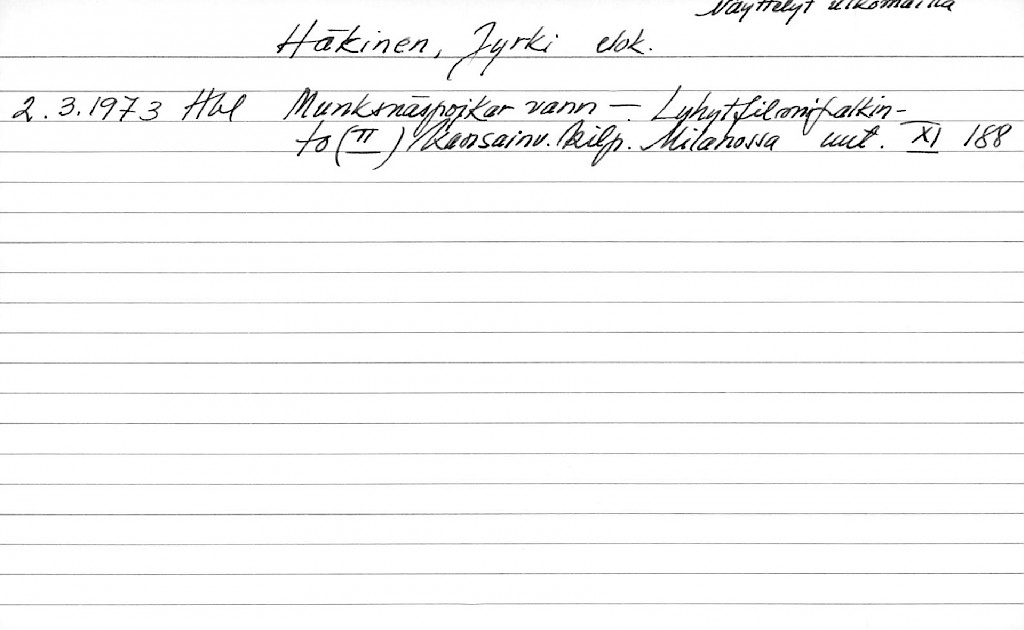 Näyttelyt ulkomailla
Häkinen, Jyrki elok.
2.3.1973 Hbl Munksnäspojkar vann – Lyhytfilmipalkin-
to (II) / Kansainv. kilp. Milanossa uut. XI 188